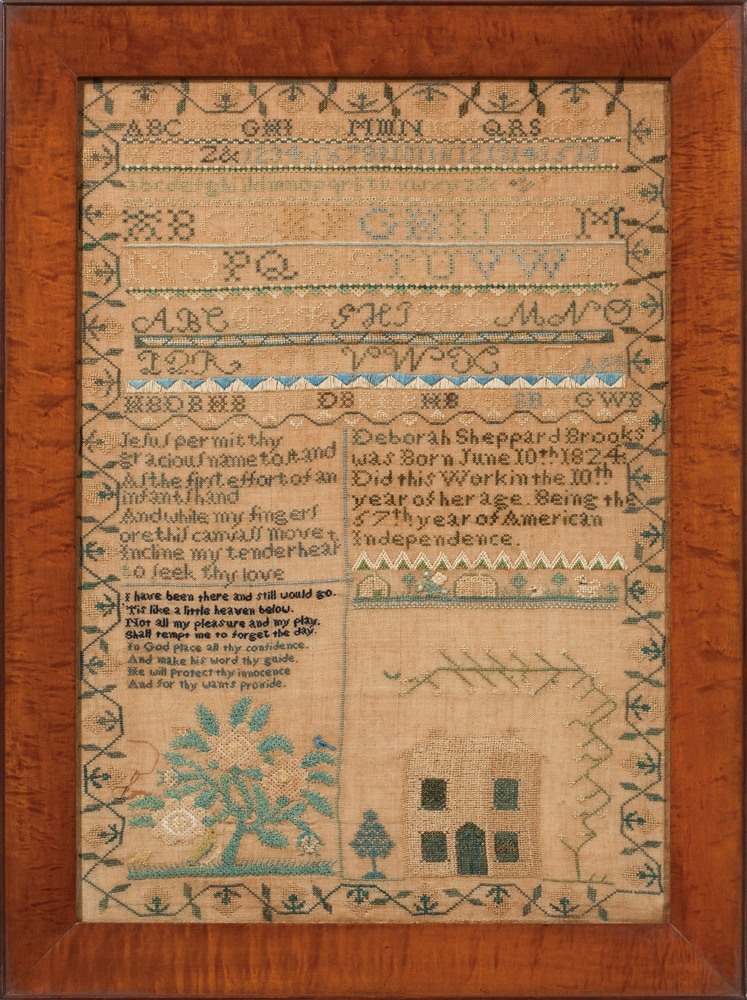 ABC GHI MN QRS
Z& 1 2 3 4 5 6 7 8 9 10 11 12 13 14 15 16
abcdefghiklmnopqrstuvwxyz&
AB GHIJ M
NO PQ RS TU VW
ABC GHI MNO
PQR VWX Z
HB DB HB DB HB SB GWB
Jesus permit thy
gracious name to stand
As the first effort of an
infants hand
And while my fingers
ore this canvass move
Incline my tender hear
to seek thy love
Deborah Sheppard Brooks
was Born June 10th 1824
Did this Work in the 10th
year of her age. Being the
57th year of American
Independence.
I have been there and still would go.
'Tis like a little heaven below.
Not all my pleasure and my play.
Shall tempt me to forget the day.
In God place all thy confidence.
And make his word thy guide.
He will protect thy innocence
And for thy wants provide.